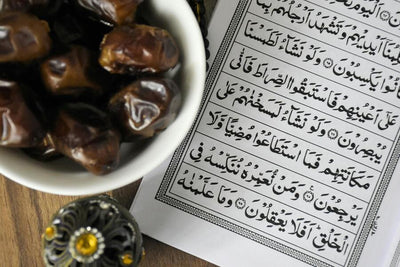 اَلْيَوْمَ
اَيْدِيْهِمْ وَتَشْهَدُ اَرْجُلُهُمْ بِمَا
كَانُوْا يَكْسِبُوْنَ ۝ وَلَوْ نَشَآءُ لَطَمَسْنَا
عَلٰٓى اَعْيُنِهِمْ فَاسْتَبَقُوا الصِّرَاطَ فَاَنّٰى
يُبْصِرُوْنَ ۝ وَلَوْ نَشَآءُ لَمَسَخْنٰهُمْ عَلٰى
مَكَانَتِهِمْ فَمَا اسْتَطَاعُوْا مُضِيًّا وَّلَا
يَرْجِعُوْنَ ۝ وَمَنْ نُّعَمِّرْهُ نُنَكِّسْهُ فِى
الْخَلْقِ ۗ اَفَلَا يَعْقِلُوْنَ ۝ وَمَا عَلَّمْنٰهُ